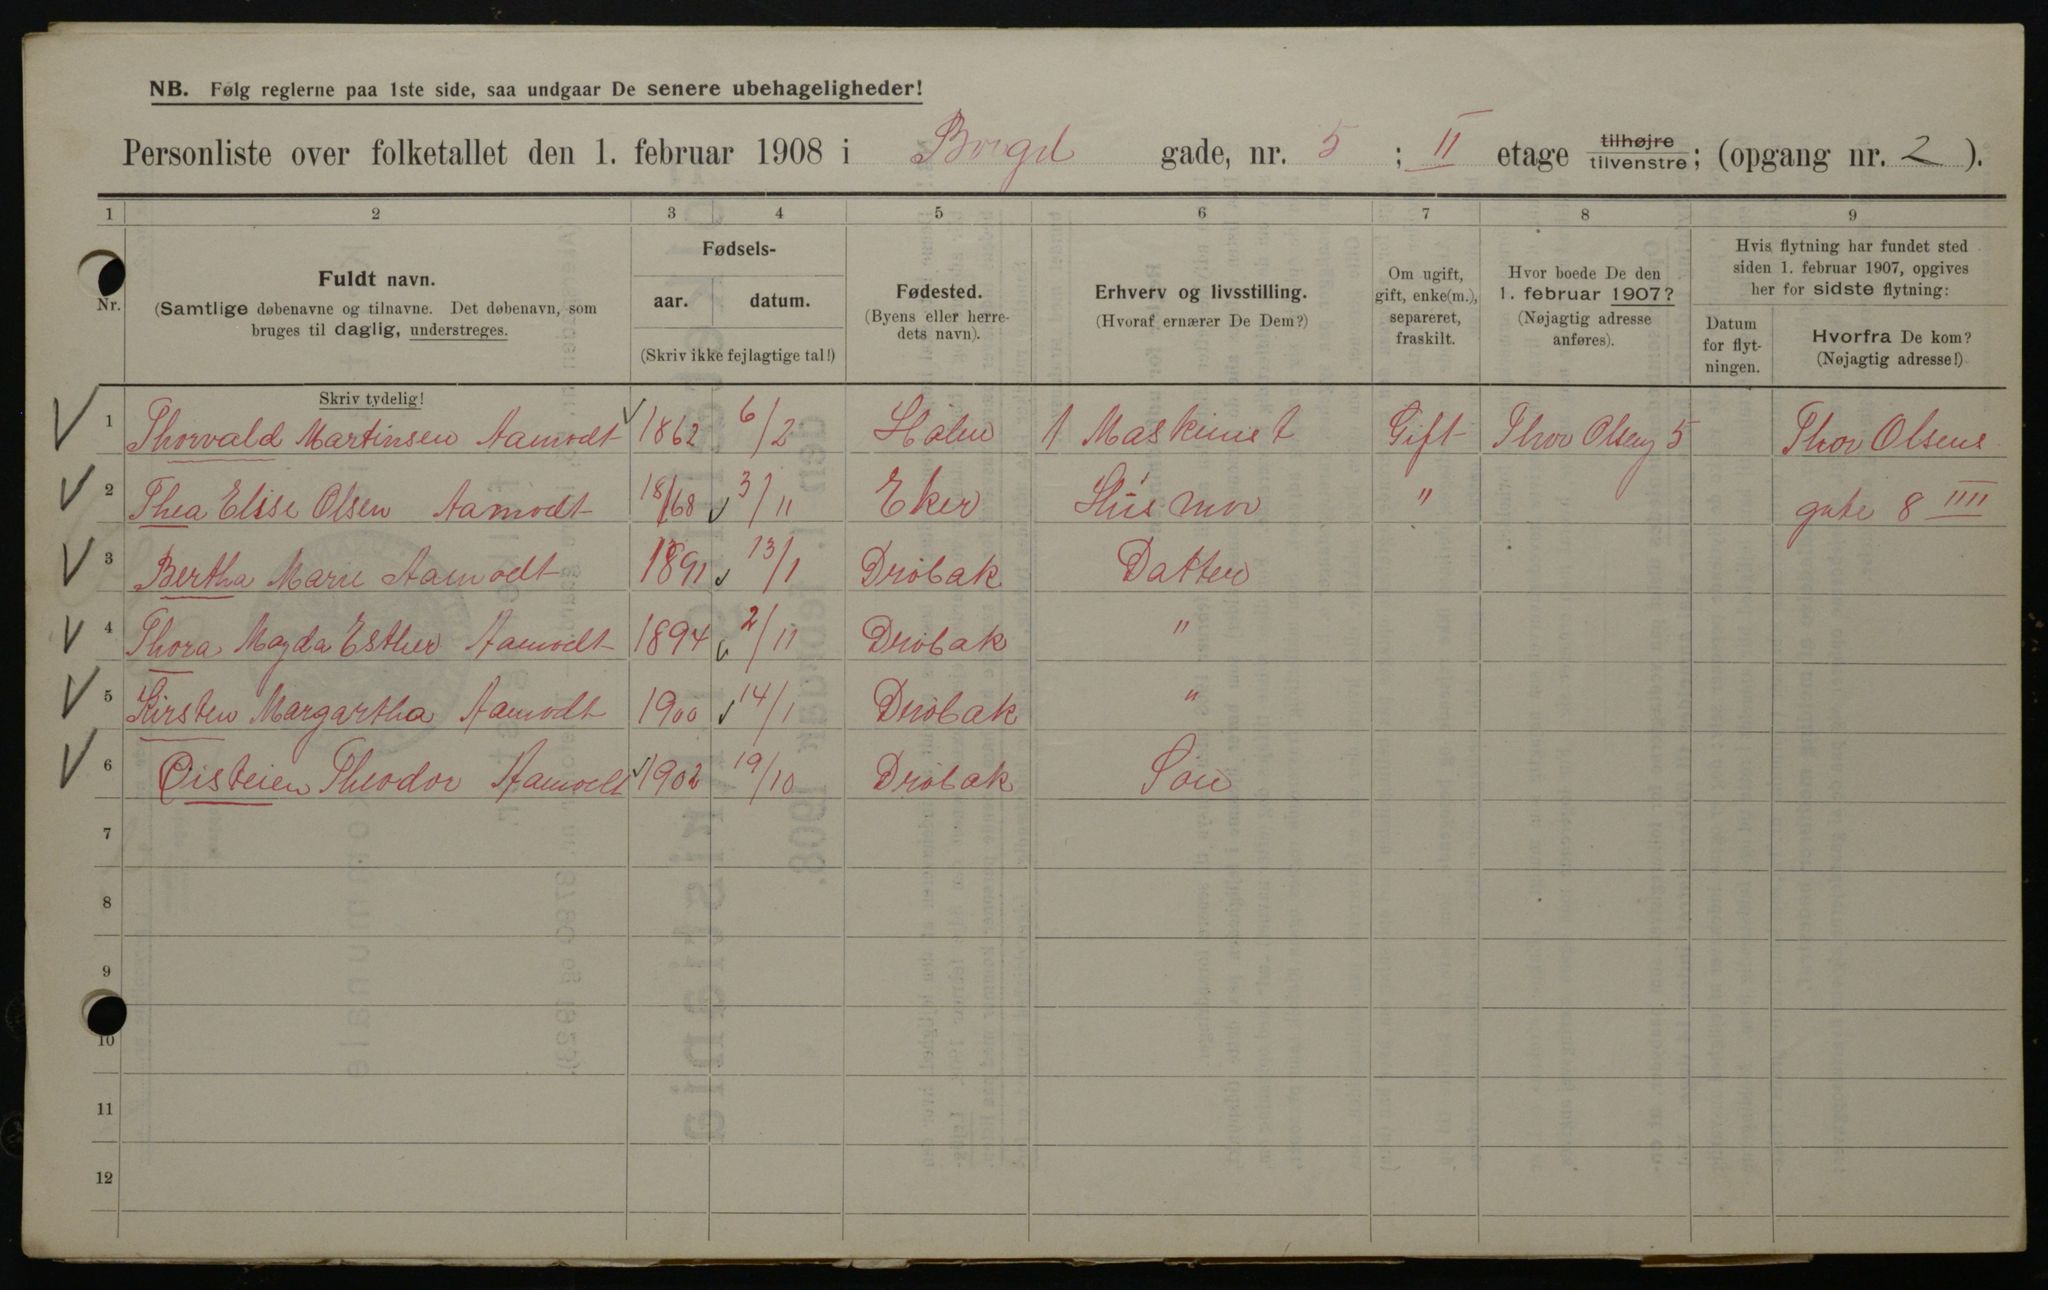 NB. Følg reglerne paa 1ste side, saa undgaar De senere ubehageligheder!
Personliste over folketallet den 1. februar 1908 i gade, nr. 5 ; II etage tilhøjre tilvenstre; (opgang nr. 2 ).
1 2 3 4 5 6 7 8 9
Nr.
Fuldt navn.
(Samtlige døbenavne og tilnavne. Det døbenavn, som
bruges til daglig, understreges.
Skriv tydelig!
Fødsels-
aar. datum.
(Skriv ikke fejlagtige tal!)
Fødested.
(Byens eller herre-
dets navn).
Erhverv og livsstilling.
(Hvoraf ernærer De Dem?)
Om ugift,
gift, enke(m.),
separeret,
fraskilt.
Hvor boede De den
1. februar 1907?
(Nøjagtig adresse
anføres).
Hvis flytning har fundet sted
siden 1. februar 1907, opgives
her for sidste flytning:
Datum
for flyt-
ningen.
Hvorfra De kom?
(Nøjagtig adresse!)
1 Thorvald Martinsen Aamodt 1862 6/2 Hølen 1 Maskinist Gift Thor Olseng 5 Thor Olsens
2 Thea Elise Olsen Aamodt 18/68 3/11 Eker Husmor " gate 8 IIII
3 Bertha Marie Aamodt 1891 13/1 Drøbak Datter
4 Thora Magda Esther Aamodt 1894 2/11 Drøbak "
5 Kirsten Margartha Aamodt 1900 14/1 Drøbak "
6 Øisteien Theodor Aamodt 1902 19/10 Drøbak Søn
7
8
9
10
11
12